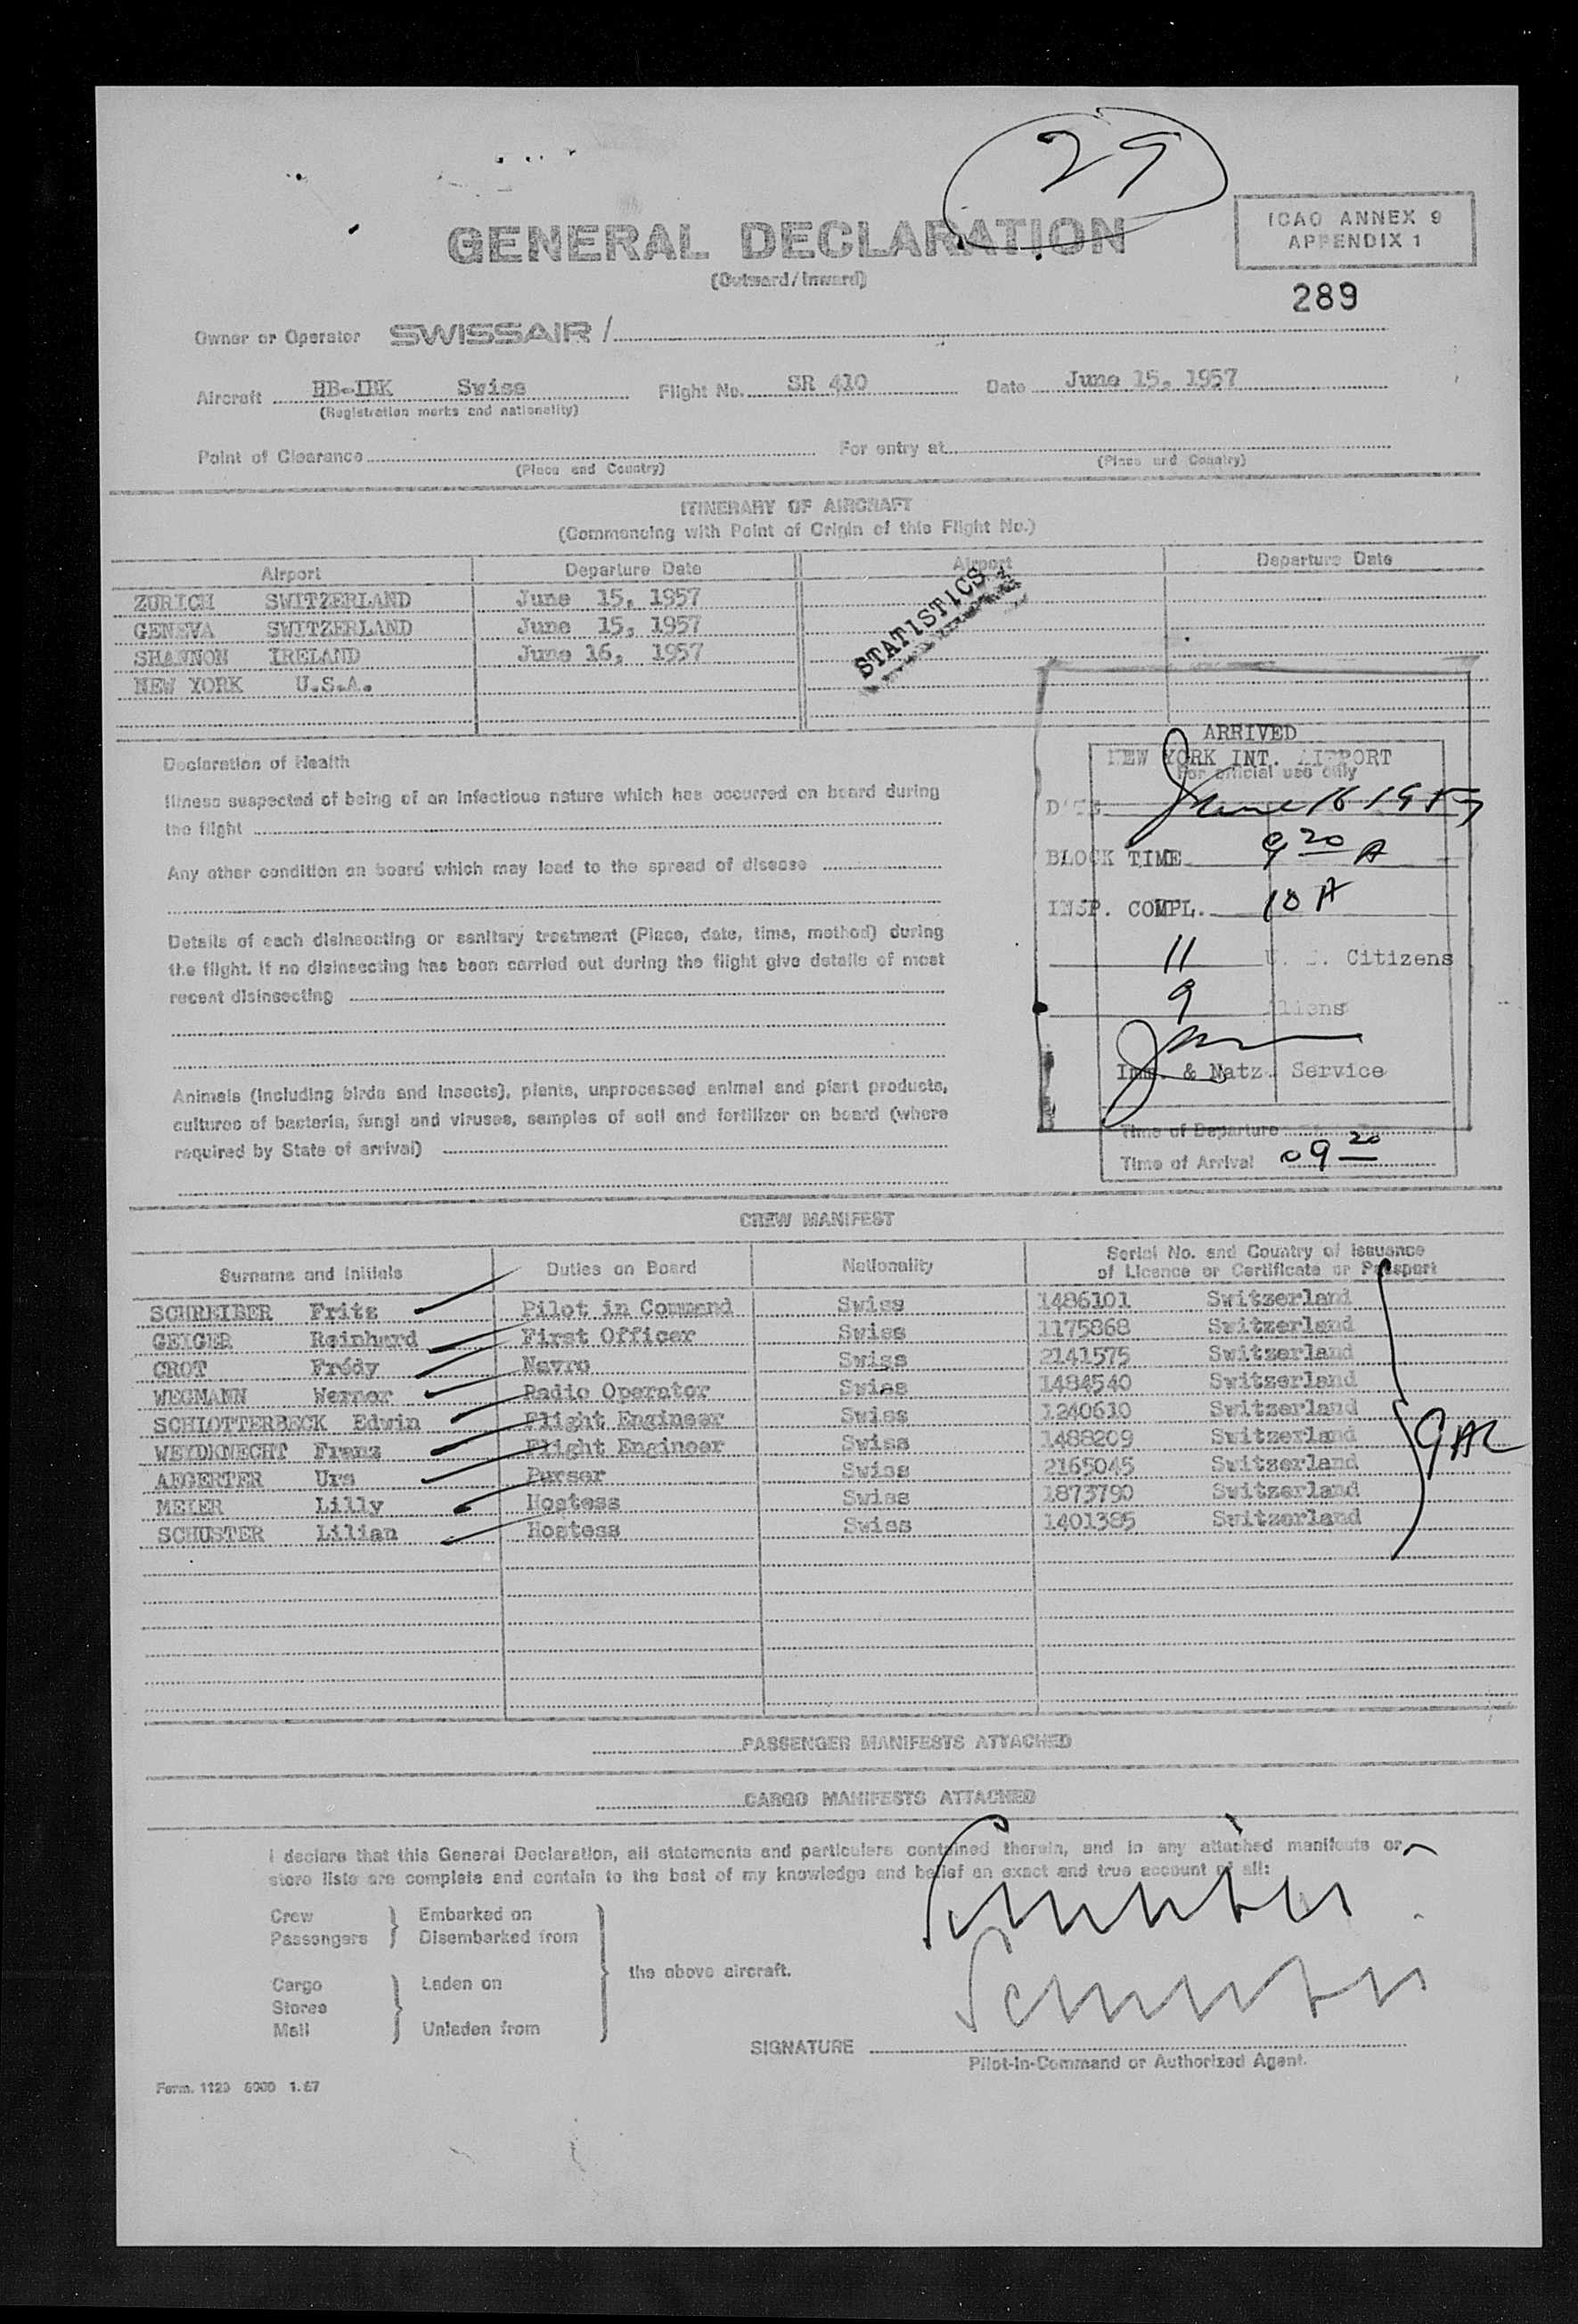 29
GENERAL DECLARATION
(Outward/Inward)
ICAO ANNEX 9
APPENDIX 1
289
Owner or Operator SWISSAIR /
Aircraft HB-IBK Swiss Flight No. SR 410 Date June 15, 1957
(Registration marks and nationality)
Point of Clearance For entry at
(Place and Country) (Place and Country)
ITINERARY OF AIRCRAFT
(Commencing with Point of Origin of this Flight No.)
Airport Departure Date Airport Departure Date
ZURICH SWITZERLAND June 15, 1957
GENEVA SWITZERLAND June 15, 1957
SHANNON IRELAND June 16, 1957
NEW YORK U.S.A.
STATISTICS
Declaration of Health
Illness suspected of being of an infectious nature which has occurred on board during
the flight
Any other condition on board which may lead to the spread of disease
Details of each disinsecting or sanitary treatment (Place, date, time, method) during
the flight. If no disinsecting has been carried out during the flight give details of most
recent disinsecting
Animals (including birds and insects), plants, unprocessed animal and plant products,
cultures of bacteria, fungi and viruses, samples of soil and fertilizer on board (where
required by State of arrival)
ARRIVED
NEW YORK INT. AIRPORT
For official use only
DATE June 16 1957
BLOCK TIME 9 20 A
INSP. COMPL. 10 A
11 U. S. Citizens
9 Aliens
Imm. & Natz. Service
Time of Departure
Time of Arrival 09 20
CREW MANIFEST
Surname and Initials Duties on Board Nationality Serial No. and Country of Issuance
of Licence or Certificate or Passport
SCHREIBER Fritz Pilot in Command Swiss 1486101 Switzerland
GEIGER Reinhard First Officer Swiss 1175868 Switzerland
CROT Frédy Navro Swiss 2141575 Switzerland
WEGMANN Werner Radio Operator Swiss 1484540 Switzerland
SCHLOTTERBECK Edwin Flight Engineer Swiss 1240610 Switzerland
WEYDKNECHT Franz Flight Engineer Swiss 1488209 Switzerland
AEGERTER Urs Purser Swiss 2165045 Switzerland
MEIER Lilly Hostess Swiss 1873790 Switzerland
SCHUSTER Lilian Hostess Swiss 1401385 Switzerland
PASSENGER MANIFESTS ATTACHED
CARGO MANIFESTS ATTACHED
I declare that this General Declaration, all statements and particulars contained therein, and in any attached manifests or
store lists are complete and contain to the best of my knowledge and belief an exact and true account of all:
Crew Embarked on
Passengers Disembarked from
the above aircraft.
Cargo Laden on
Stores
Mail Unladen from
SIGNATURE
Pilot-in-Command or Authorized Agent.
Form. 1120 5000 1.57